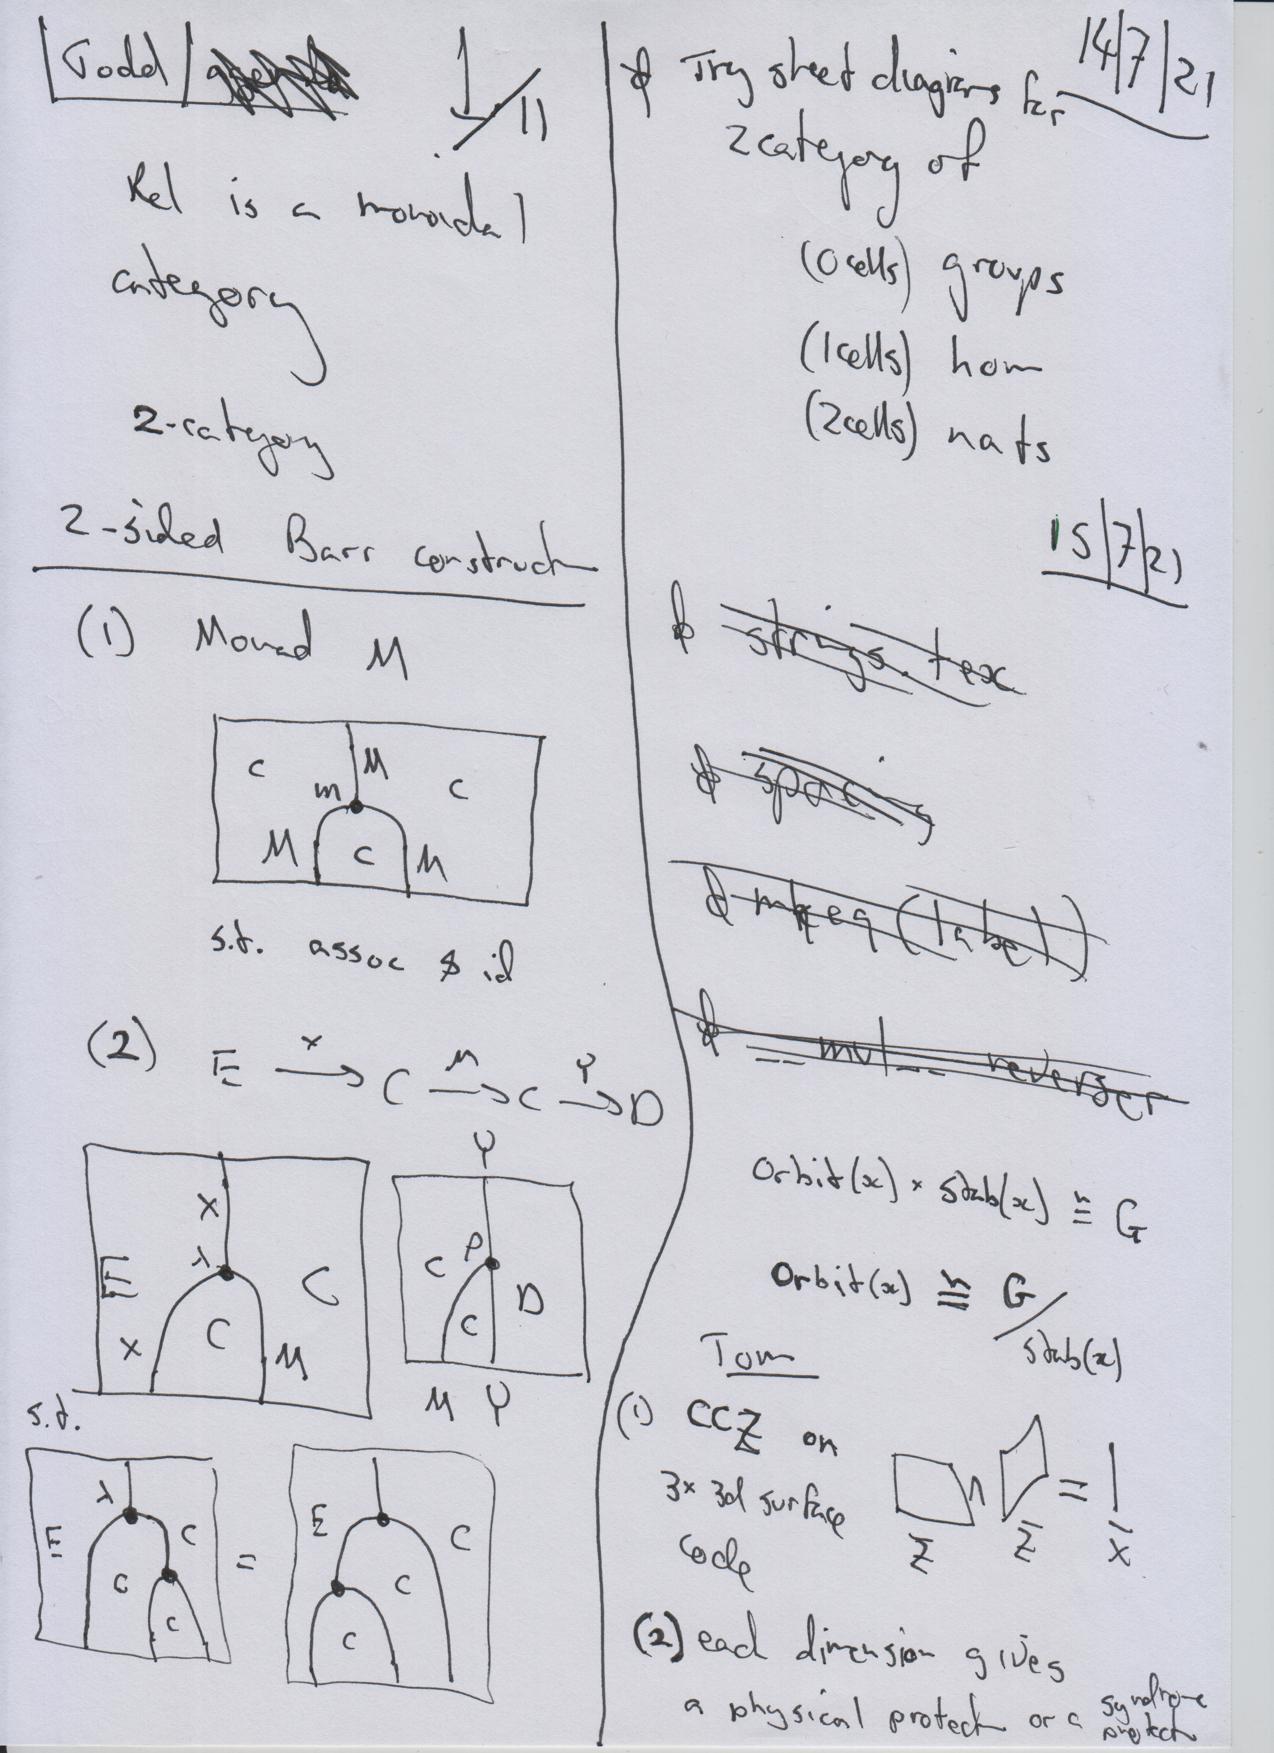 Todd
1/11
Rel is a monoidal
category
2-category
2-sided Barr construct
(1) Monad M
C M C
m
M C M
s.t. assoc & id
(2) E x→ C M→ C Y→ D
X
λ
E C C
X M
Y
ρ
C D
C
M Y
s.t.
λ
E C
C
C
=
E C
C
C
14/7/21
Try sheet diagrams for
2category of
(0cells) groups
(1cells) hom
(2cells) nats
15/7/21
strings.tex
spacing
mkeq (label)
__mul__ reverser
Orbit(x) × stab(x) ≅ G
Orbit(x) ≅ G/stab(x)
Tom
(1) CCZ on
3× 3d surface
code
∧ = |
Z̄ Z̄ X̄
(2) each dimension gives
a physical protect or a syndrome
protect